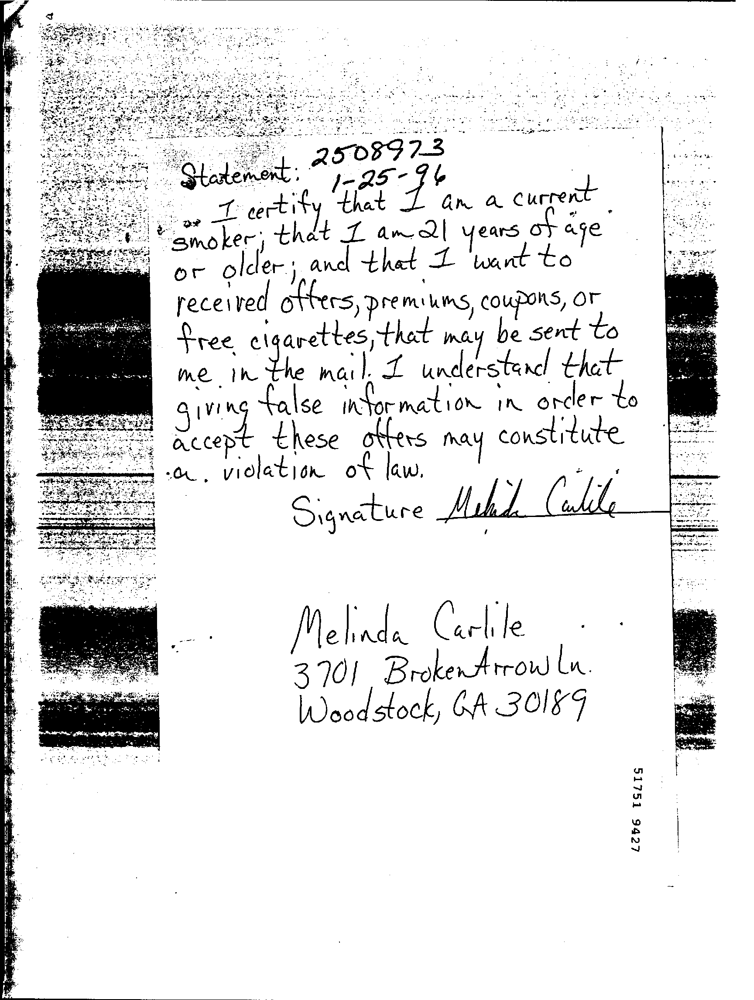 2508973
Statement: 1-25-96
I certify that I am a current
smoker; that I am 21 years of age
or older; and that I want to
received offers, premiums, coupons, or
free cigarettes, that may be sent to
me in the mail. I understand that
giving false information in order to
accept these offers may constitute
a violation of law.
Signature Melinda Carlile
Melinda Carlile
3701 Broken Arrow Ln.
Woodstock, GA 30189
51751 9427